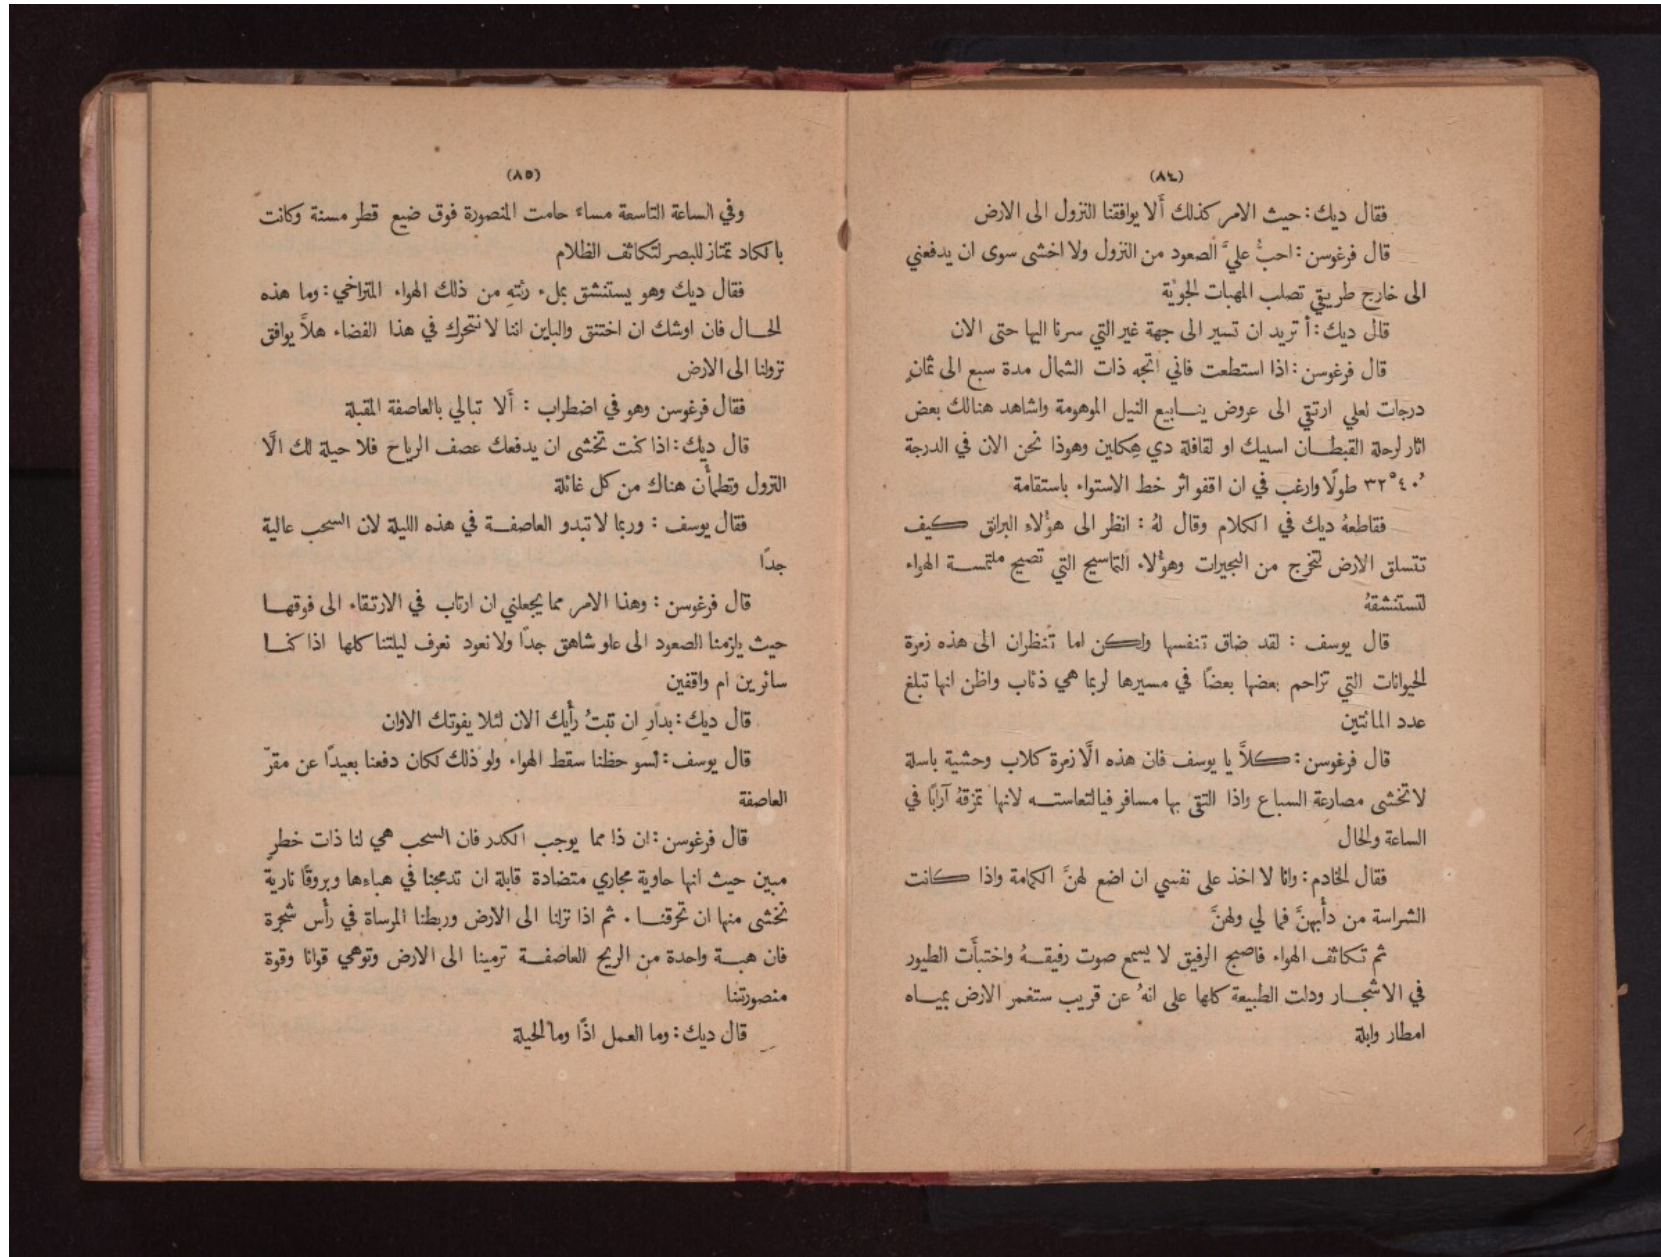 (٨٤)
فقال ديك : حيث الامر كذلك أَلا يوافقنا النزول الى الارض
قال فرغوسن : احبُّ عليَّ الصعود من النزول ولا اخشى سوى ان يدفعني
الى خارج طريقي تصلب المهبات الجوية
قال ديك : أ تريد ان تسير الى جهة غير التي سرنا اليها حتى الان
قال فرغوسن : اذا استطعت فاني اتجه ذات الشمال مدة سبع الى ثمانٍ
درجات لعلي ارتقي الى عروض ينــابيع النيل الموهومة واشاهد هنالك بعض
اثار لرحلة القبطــان اسبيك او لقافلة دي هكلين وهوذا نحن الان في الدرجة
٤٠َ ٣٢° طولًا وارغب في ان اقفو اثر خط الاستواء باستقامة
فقاطعهُ ديك في الكلام وقال لهُ : انظر الى هؤُلاءِ البرانق كيف
تتسلق الارض لتخرج من البحيرات وهؤُلاء التماسيح التي تصيح ملتمســة الهواء
لتستنشقهُ
قال يوسف : لقد ضاق تنفسها ولكن اما تنظران الى هذه زمرة
الحيوانات التي تزاحم بعضها بعضًا في مسيرها لربما هي ذئاب واظن انها تبلغ
عدد المائتين
قال فرغوسن : كلَّا يا يوسف فان هذه الَّا زمرة كلاب وحشية باسلة
لا تخشى مصارعة السباع واذا التقى بها مسافر فيالتعاستــه لانها تمزقهُ آرابًا في
الساعة والحال
فقال الخادم : وانا لا اخذ على نفسي ان اضع لهنَّ الكمامة واذا كانت
الشراسة من دأْبهنَّ فما لي ولهنَّ
ثم تكاثف الهواء فاصبح الرفيق لا يسمع صوت رفيقــهُ واختبأَت الطيور
في الاشجــار ودلت الطبيعة كلها على انهُ عن قريب ستغمر الارض بميــاه
امطار وابلة
(٨٥)
وفي الساعة التاسعة مساءً حامت المنصورة فوق ضيع قطر مسنة وكانت
بالكاد تمتاز للبصر لتكاثف الظلام
فقال ديك وهو يستنشق بملء رئتهِ من ذلك الهواء المتراخي : وما هذه
الحــال فان اوشك ان اختنق والباين اننا لا نتحرك في هذا الفضاء هلَّا يوافق
نزولنا الى الارض
فقال فرغوسن وهو في اضطراب : أَلا تبالي بالعاصفة المقبلة
قال ديك : اذا كنت تخشى ان يدفعك عصف الرياح فلا حيلة لك الَّا
النزول وتطمأن هناك من كل غائلة
فقال يوسف : وربما لا تبدو العاصفــة في هذه الليلة لان السحب عالية
جدًا
قال فرغوسن : وهذا الامر مما يجعلني ان ارتاب في الارتقاء الى فوقهــا
حيث يلزمنا الصعود الى علو شاهق جدًا ولا نعود نعرف ليلتنا كلها اذا كنــا
سائرين ام واقفين
قال ديك : بدارِ ان تبتُ رأْيك الان لئلا يفوتك الاوان
قال يوسف : لسو حظنا سقط الهواء ولو ذلك لكان دفعنا بعيدًا عن مقرّ
العاصفة
قال فرغوسن : ان ذا مما يوجب الكدر فان السحب هي لنا ذات خطرٍ
مبين حيث انها حاوية مجاري متضادة قابلة ان تدمجنا في هباءها وبروقًا نارية
نخشى منها ان تحرقنــا . ثم اذا نزلنا الى الارض وربطنا المرساة في رأْس شجرة
فان هبــة واحدة من الريح العاصفــة ترمينا الى الارض وتوهي قوانا وقوة
منصورتنا
قال ديك : وما العمل اذًا وما الحيلة